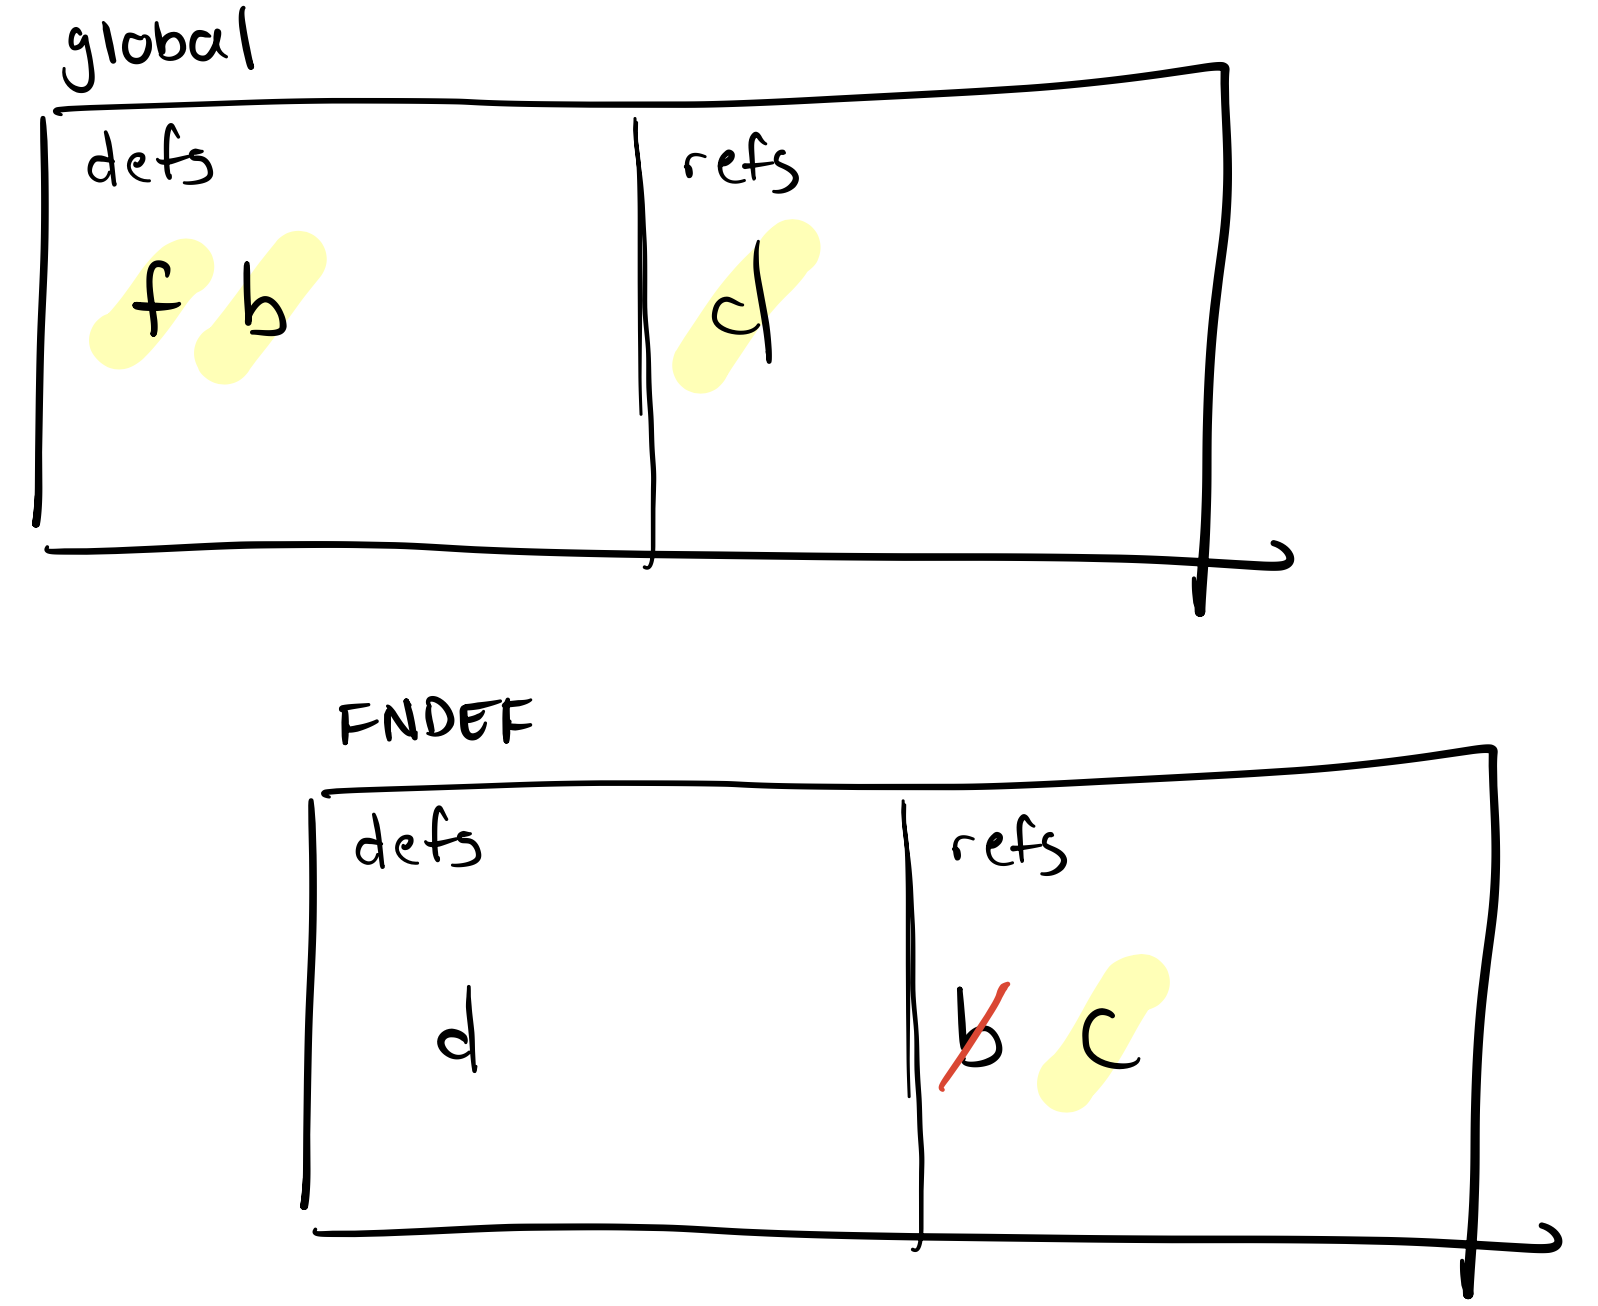 global
defs refs
f b d
FNDEF
defs refs
d b c